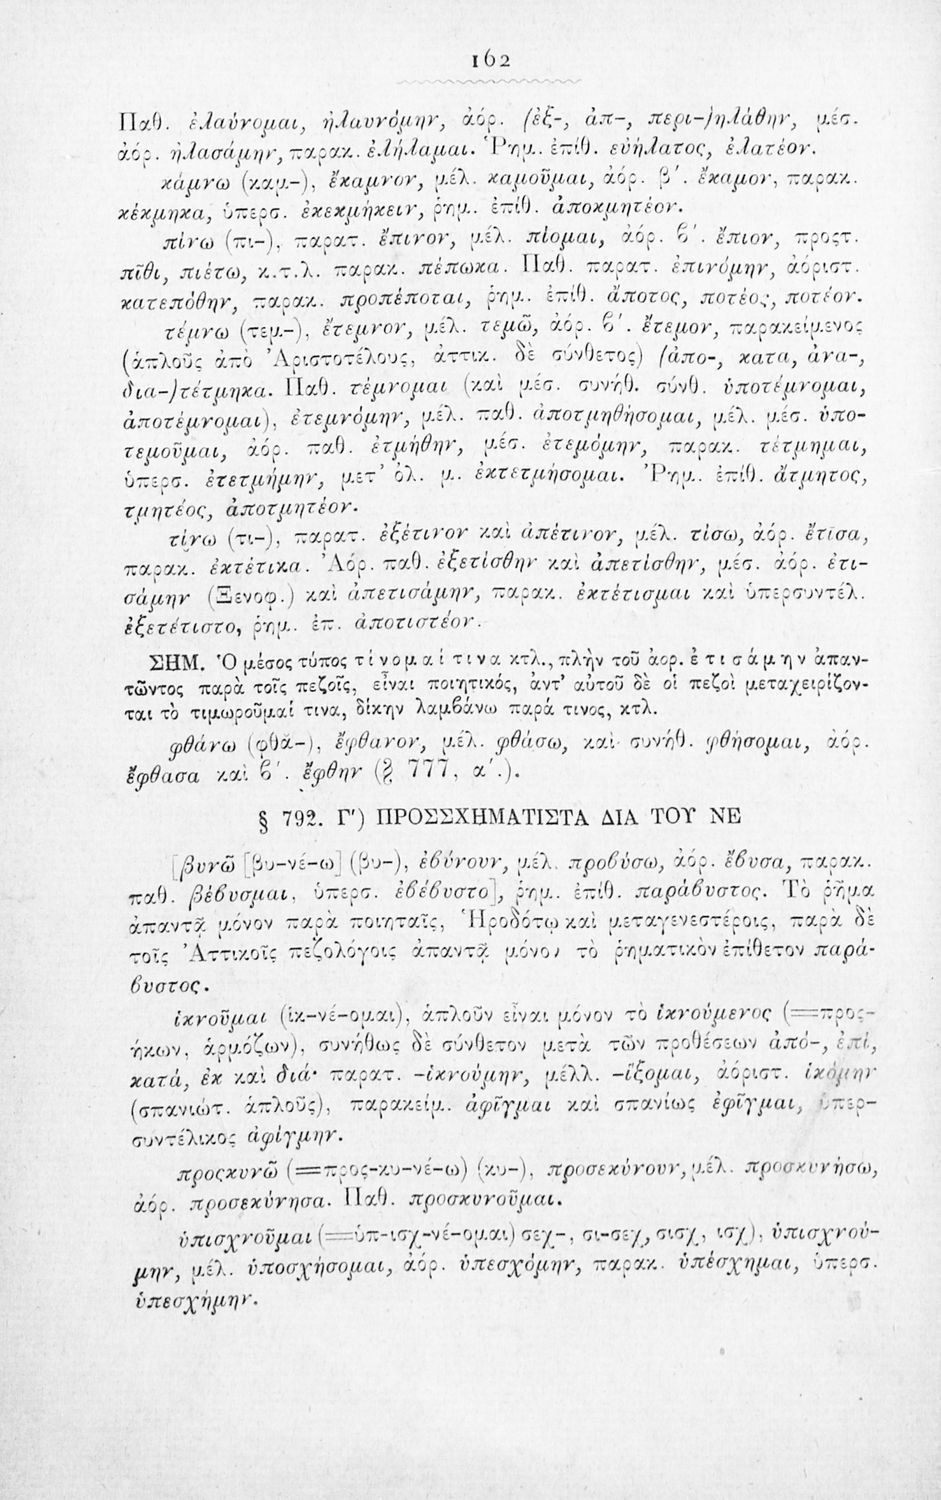 162
Παθ. ἐλαύνομαι, ἠλαυνόμην, ἀόρ. (ἐξ-, ἀπ-, περι-)ηλάθην, μέσ.
ἀόρ. ἠλασάμην, παρακ. ἐλήλαμαι. Ῥημ. ἐπίθ. εὐήλατος, ἐλατέον.
κάμνω (καμ-), ἔκαμνον, μέλ. καμοῦμαι, ἀόρ. β΄. ἔκαμον, παρακ.
κέκμηκα, ὑπερσ. ἐκεκμήκειν, ῥημ. ἐπίθ. ἀποκμητέον.
πίνω (πι-), παρατ. ἔπινον, μέλ. πίομαι, ἀόρ. ϐ΄. ἔπιον, προςτ.
πῖθι, πιέτω, κ.τ.λ. παρακ. πέπωκα. Παθ. παρατ. ἐπινόμην, ἀόριστ.
κατεπόθην, παρακ. προπέποται, ῥημ. ἐπίθ. ἄποτος, ποτέος, ποτέον.
τέμνω (τεμ-), ἔτεμνον, μέλ. τεμῶ, ἀόρ. ϐ΄. ἔτεμον, παρακείμενος
(ἁπλοῦς ἀπὸ Ἀριστοτέλους, ἀττικ. δὲ σύνθετος) (ἀπο-, κατα, ἀνα-,
δια-)τέτμηκα. Παθ. τέμνομαι (καὶ μέσ. συνήθ. σύνθ. ὑποτέμνομαι,
ἀποτέμνομαι), ἐτεμνόμην, μέλ. παθ. ἀποτμηθήσομαι, μέλ. μέσ. ὑπο-
τεμοῦμαι, ἀόρ. παθ. ἐτμήθην, μέσ. ἐτεμόμην, παρακ. τέτμημαι,
ὑπερσ. ἐτετμήμην, μετ’ ὀλ. μ. ἐκτετμήσομαι. Ῥημ. ἐπίθ. ἄτμητος,
τμητέος, ἀποτμητέον.
τίνω (τι-), παρατ. ἐξέτινον καὶ ἀπέτινον, μέλ. τίσω, ἀόρ. ἔτισα,
παρακ. ἐκτέτικα. Ἀόρ. παθ. ἐξετίσθην καὶ ἀπετίσθην, μέσ. ἀόρ. ἐτι-
σάμην (Ξενοφ.) καὶ ἀπετισάμην, παρακ. ἐκτέτισμαι καὶ ὑπερσυντέλ.
ἐξετέτιστο, ῥημ. ἐπ. ἀποτιστέον.
ΣΗΜ. Ὁ μέσος τύπος τίνομαί τινα κτλ., πλὴν τοῦ ἀορ. ἐτισάμην ἀπαν-
τῶντος παρὰ τοῖς πεζοῖς, εἶναι ποιητικός, ἀντ’ αὐτοῦ δὲ οἱ πεζοὶ μεταχειρίζον-
ται τὸ τιμωροῦμαί τινα, δίκην λαμϐάνω παρά τινος, κτλ.
φθάνω (φθᾰ-), ἔφθανον, μέλ. φθάσω, καὶ συνήθ. φθήσομαι, ἀόρ.
ἔφθασα καὶ ϐ΄. ἔφθην (§ 777, α΄.).
§ 792. Γ΄) ΠΡΟΣΣΧΗΜΑΤΙΣΤΑ ΔΙΑ ΤΟΥ ΝΕ
[βυνῶ [βυ-νέ-ω] (βυ-), ἐβύνουν, μέλ. προβύσω, ἀόρ. ἔβυσα, παρακ.
παθ. βέβυσμαι, ὑπερσ. ἐβέβυστο], ῥημ. ἐπίθ. παράβυστος. Τὸ ῥῆμα
ἀπαντᾷ μόνον παρὰ ποιηταῖς, Ἡροδότῳ καὶ μεταγενεστέροις, παρὰ δὲ
τοῖς Ἀττικοῖς πεζολόγοις ἀπαντᾷ μόνον τὸ ῥηματικὸν ἐπίθετον παρά-
ϐυστος.
ἱκνοῦμαι (ἱκ-νέ-ομαι), ἁπλοῦν εἶναι μόνον τὸ ἱκνούμενος (=προς-
ήκων, ἁρμόζων), συνήθως δὲ σύνθετον μετὰ τῶν προθέσεων ἀπό-, ἐπί,
κατά, ἐκ καὶ διά· παρατ. -ἱκνούμην, μέλλ. -ἵξομαι, ἀόριστ. ἱκόμην
(σπανιώτ. ἁπλοῦς), παρακείμ. ἀφῖγμαι καὶ σπανίως ἐφῖγμαι, ὑπερ-
συντέλικος ἀφίγμην.
προςκυνῶ (=προς-κυ-νέ-ω) (κυ-), προσεκύνουν, μέλ. προσκυνήσω,
ἀόρ. προσεκύνησα. Παθ. προσκυνοῦμαι.
ὑπισχνοῦμαι (=ὑπ-ισχ-νέ-ομαι) σεχ-, σι-σεχ, σισχ, ισχ), ὑπισχνού-
μην, μέλ. ὑποσχήσομαι, ἀόρ. ὑπεσχόμην, παρακ. ὑπέσχημαι, ὑπερσ.
ὑπεσχήμην.